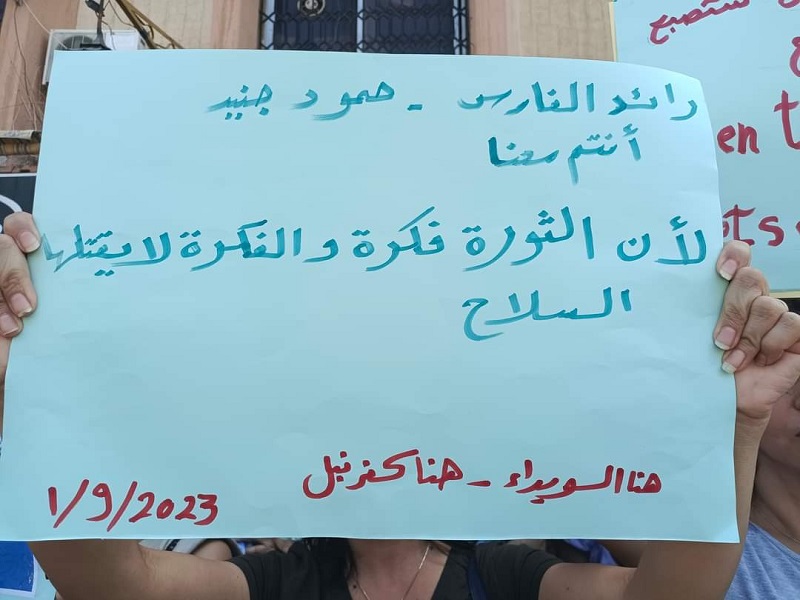 رائد الفارس - حمود جنيد
أنتم معنا
لأن الثورة فكرة والفكرة لا يقتلها
السلاح
هنا السويداء - هنا كفرنبل
1/9/2023
ستصبع
en
ts